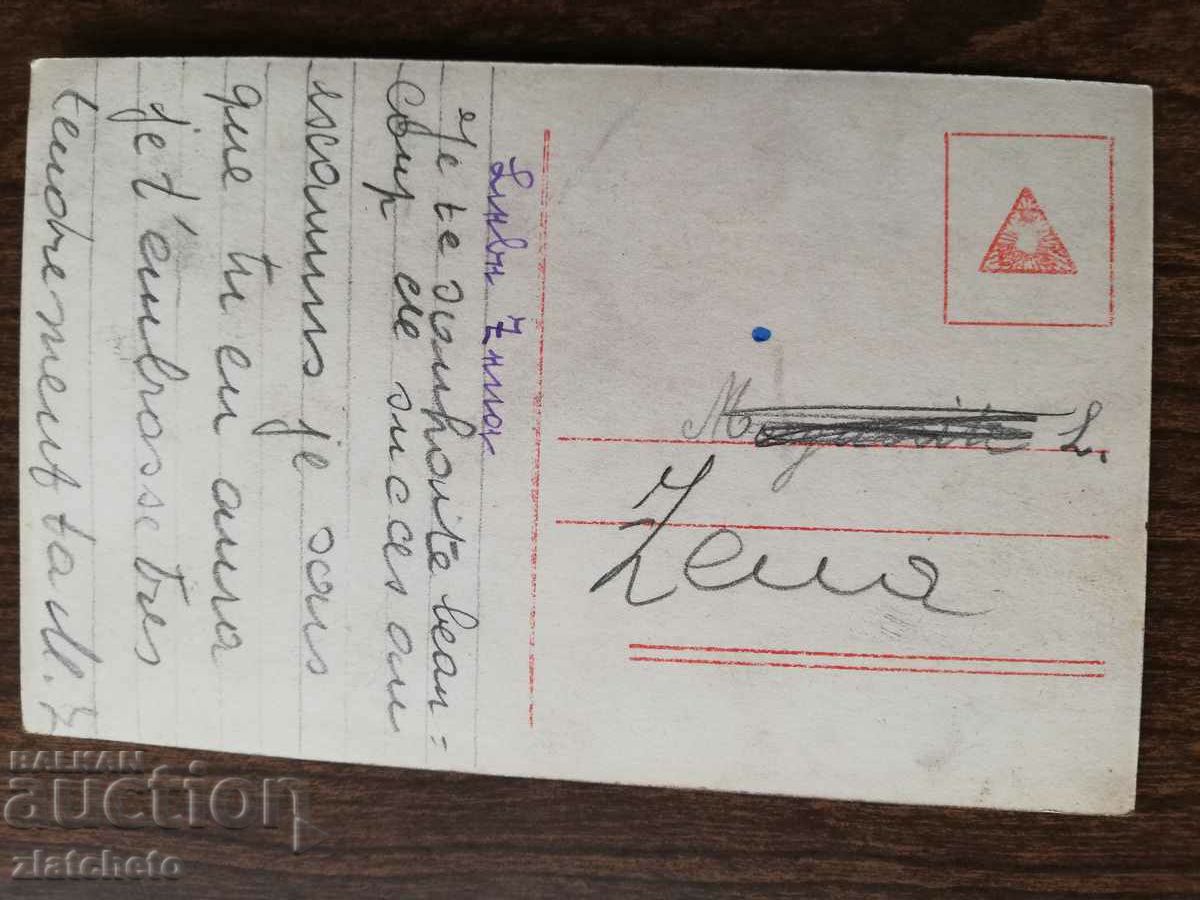 Je te souhaite beau=
coup de succes au
examins je sais
que tu en aura
je t'embrosse tres
tendrement ta M. Z
M L.
Zena
BALKAN
auction
zlatcheto